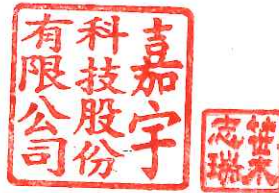 嘉宇
科技股份
有限公司
志瑞